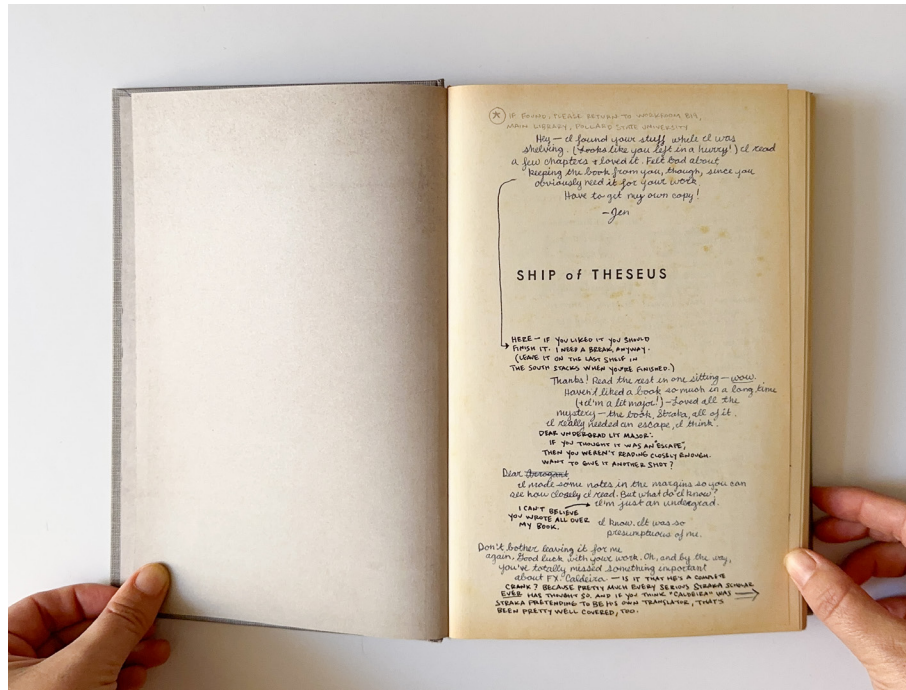 IF FOUND, PLEASE RETURN TO WORKROOM B19,
MAIN LIBRARY, POLLARD STATE UNIVERSITY
Hey – I found your stuff while I was
shelving. (Looks like you left in a hurry!) I read
a few chapters + loved it. Felt bad about
keeping the book from you, though, since you
obviously need it for your work.
Have to get my own copy!
–Jen
SHIP of THESEUS
HERE – IF YOU LIKED IT YOU SHOULD
FINISH IT. I NEED A BREAK, ANYWAY.
(LEAVE IT ON THE LAST SHELF IN
THE SOUTH STACKS WHEN YOU'RE FINISHED.)
Thanks! Read the rest in one sitting – wow.
Haven't liked a book so much in a long time
(+ I'm a lit major!) – Loved all the
mystery – the book, Straka, all of it.
I really needed an escape, I think.
DEAR UNDERGRAD LIT MAJOR:
IF YOU THOUGHT IT WAS AN "ESCAPE,"
THEN YOU WEREN'T READING CLOSELY ENOUGH.
WANT TO GIVE IT ANOTHER SHOT?
Dear Arrogant
I made some notes in the margins so you can
see how closely I read. But what do I know?
I'm just an undergrad.
I CAN'T BELIEVE
YOU WROTE ALL OVER
MY BOOK.
I know. It was so
presumptuous of me.
Don't bother leaving it for me
again. Good luck with your work. Oh, and by the way,
you've totally missed something important
about FX. Caldeira – IS IT THAT HE'S A COMPLETE
CRANK? BECAUSE PRETTY MUCH EVERY SERIOUS STRAKA SCHOLAR
EVER HAS THOUGHT SO. AND IF YOU THINK "CALDEIRA" WAS
STRAKA PRETENDING TO BE HIS OWN TRANSLATOR, THAT'S
BEEN PRETTY WELL COVERED, TOO.